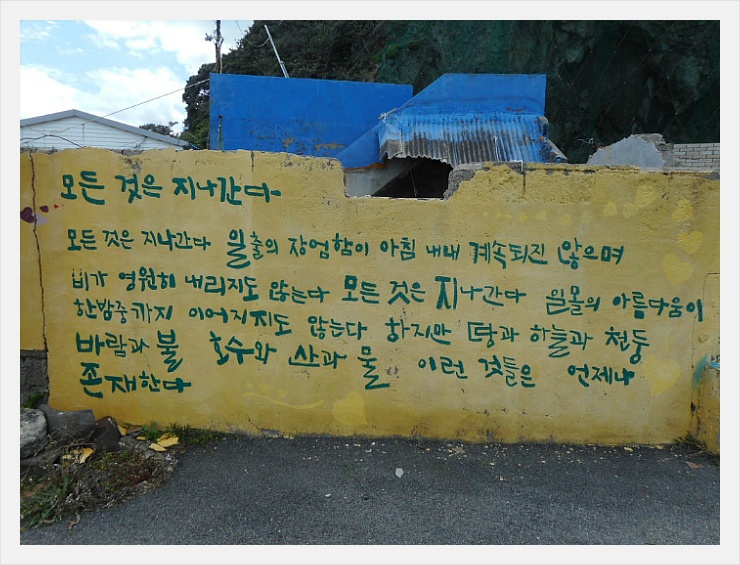 모든 것은 지나간다
모든 것은 지나간다 일출의 장엄함이 아침 내내 계속되진 않으며
비가 영원히 내리지도 않는다 모든 것은 지나간다 일몰의 아름다움이
한밤중까지 이어지지도 않는다 하지만 땅과 하늘과 천둥
바람과 불 호수와 산과 물 이런 것들은 언제나
존재한다